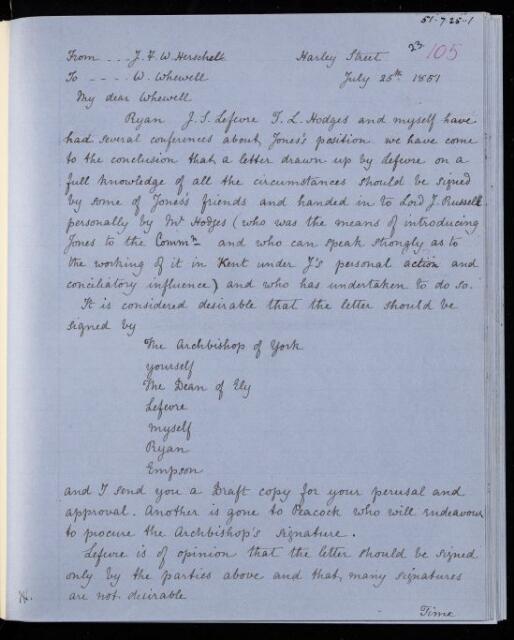 51-7-25-1
23 105
From - - - J. F. W. Herschel Harley Street
To - - - - W. Whewell July 25th 1851
My dear Whewell
Ryan J. S. Lefevre T. L. Hodges and myself have
had several conferences about Jones's position we have come
to the conclusion that a letter drawn up by Lefevre on a
full knowledge of all the circumstances should be signed
by some of Jones's friends and handed in to Lord J. Russell
personally by Mr Hodges (who was the means of introducing
Jones to the Commn and who can speak strongly as to
the working of it in Kent under J's personal action and
conciliatory influence) and who has undertaken to do so.
It is considered desirable that the letter should be
signed by
The Archbishop of York
yourself
The Dean of Ely
Lefevre
myself
Ryan
Empson
and I send you a Draft copy for your perusal and
approval. Another is gone to Peacock who will endeavour
to procure the Archbishop's signature.
Lefevre is of opinion that the letter should be signed
only by the parties above and that many signatures
are not desirable
Time